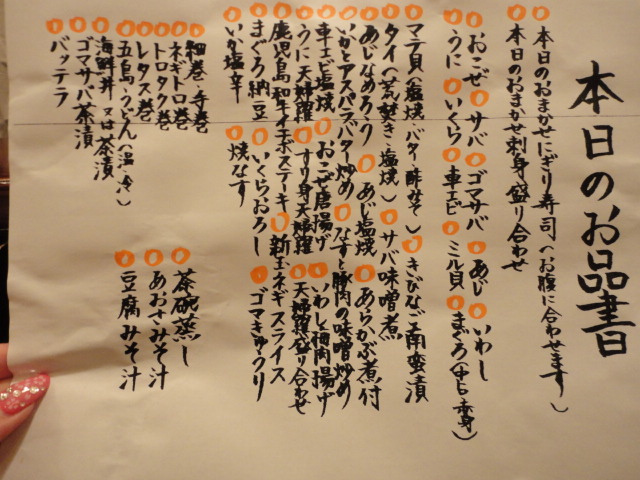 本日のお品書
本日のおまかせにぎり寿司(お腹に合わせます)
本日のおまかせ刺身盛り合わせ
おこぜ サバ ゴマサバ あじ いわし
うに いくら 車エビ ミル貝 まぐろ(中トロ・赤身)
マテ貝(塩焼・バター・酢みそ) きびなご南蛮漬
タイ(荒焚き・塩焼) サバ味噌煮
あじなめろう あじ塩焼 あらかぶ煮付
いかとアスパラバター炒め なすと豚肉の味噌炒め
車エビ塩焼 おこぜ唐揚げ いわし梅肉揚げ
うに天婦羅 すり身天婦羅 天婦羅盛り合わせ
鹿児島和牛イエボステーキ 新玉ネギスライス
まぐろ納豆 いくらおろし ゴマきゅうり
いか塩辛 焼なす
細巻・手巻
ネギトロ巻
トロタク巻
レタス巻
五島うどん(温・冷)
海鮮丼又は茶漬
ゴマサバ茶漬
バッテラ
茶碗蒸し
あおさみそ汁
豆腐みそ汁